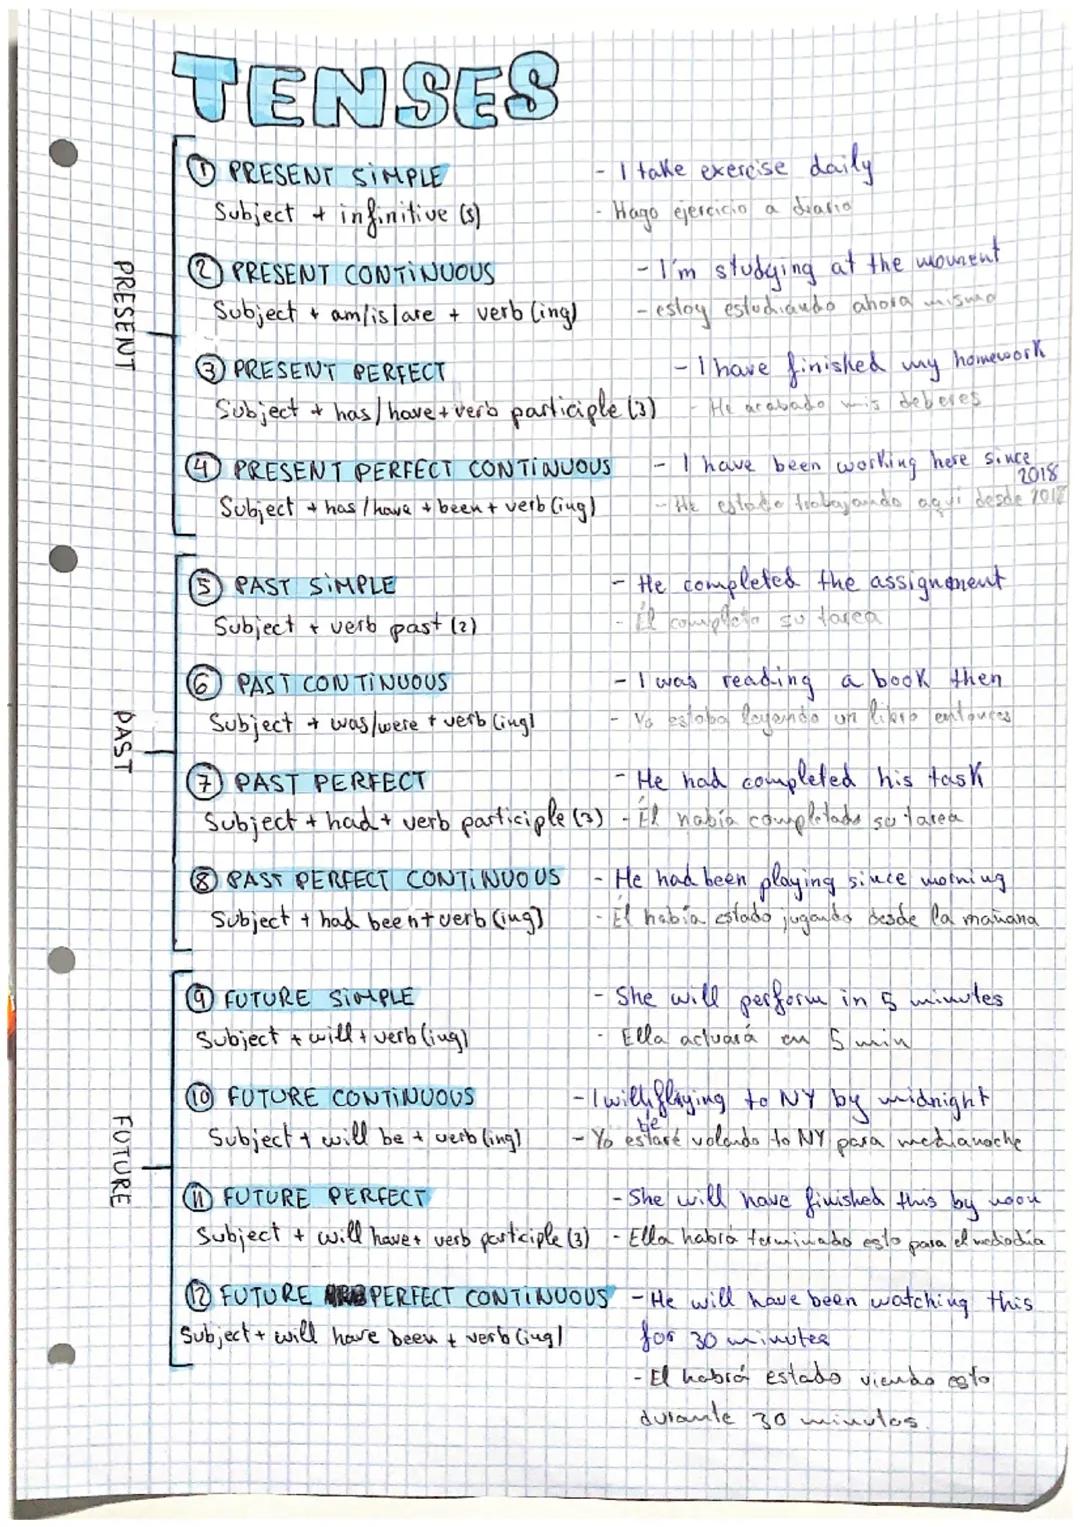 TENSES
① PRESENT SIMPLE
- I take exercise daily
Subject + infinitive (s)
- Hago ejercicio a diario
② PRESENT CONTINUOUS
- I'm studying at the moment
Subject + am/is/are + verb (ing)
- estoy estudiando ahora mismo
PRESENT
③ PRESENT PERFECT
- I have finished my homework
Subject + has/have + verb participle (3)
- He acabado mis deberes
④ PRESENT PERFECT CONTINUOUS
- I have been working here since
2018
Subject + has/have + been + verb (ing)
- He estado trabajando aquí desde 2018
⑤ PAST SIMPLE
- He completed the assignment
Subject + verb past (2)
- Él completó su tarea
⑥ PAST CONTINUOUS
- I was reading a book then
Subject + was/were + verb (ing)
- Yo estaba leyendo un libro entonces
PAST
⑦ PAST PERFECT
- He had completed his task
Subject + had + verb participle (3)
- Él había completado su tarea
⑧ PAST PERFECT CONTINUOUS
- He had been playing since morning
Subject + had been + verb (ing)
- Él había estado jugando desde la mañana
⑨ FUTURE SIMPLE
- She will perform in 5 minutes
Subject + will + verb (ing)
- Ella actuará en 5 min
⑩ FUTURE CONTINUOUS
- I will flaying to NY by midnight
be
Subject + will be + verb (ing)
- Yo estaré volando to NY para medianoche
FUTURE
⑪ FUTURE PERFECT
- She will have finished this by noon
Subject + will have + verb participle (3)
- Ella habrá terminado esto para el mediodía
⑫ FUTURE PERFECT CONTINUOUS
- He will have been watching this
Subject + will have been + verb (ing)
for 30 minutes
- El habrá estado viendo esto
durante 30 minutos.